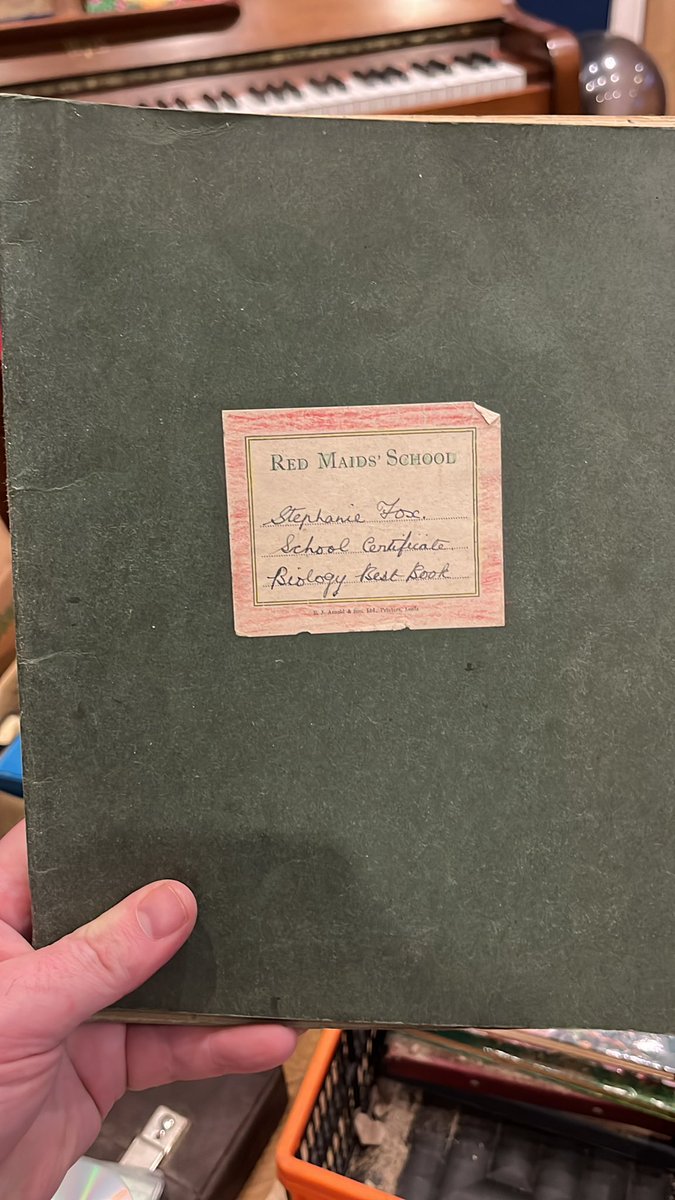 RED MAIDS' SCHOOL
Stephanie Fox.
School Certificate.
Biology Best Book
E. J. Arnold & Son, Ltd., Printers, Leeds